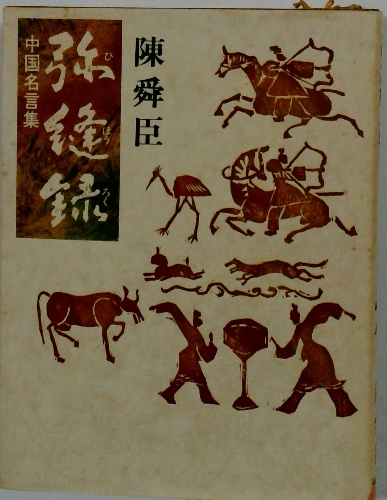 弥縫録
びほうろく
中国名言集
陳舜臣